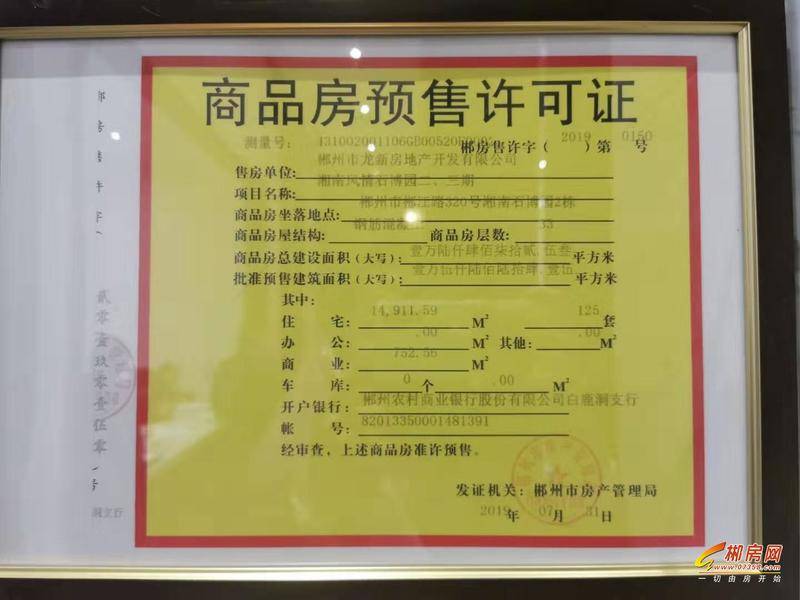 商品房预售许可证
测量号：
郴房售许字（2019）第0150号
售房单位：郴州市龙新房地产开发有限公司
项目名称：湘南风情石博园二、三期
商品房坐落地点：郴州市郴江路320号湘南石博园2栋
商品房屋结构：钢筋混凝 商品房层数：33
商品房总建设面积（大写）：壹万陆仟肆佰柒拾贰.伍叁平方米
批准预售建筑面积（大写）：壹万伍仟陆佰陆拾肆.壹伍平方米
其中：
住宅：14,911.59 M² 125 套
办公：.00 M² 其他：.00 M²
商业：752.56 M²
车库：0 个 .00 M²
开户银行：郴州农村商业银行股份有限公司白鹿洞支行
帐号：82013350001481391
经审查，上述商品房准许预售。
发证机关：郴州市房产管理局
2019年07月31日
郴房售许字（
贰零壹玖零壹伍零
号
洞支行
郴房网
www.0735fc.com
一切由房开始